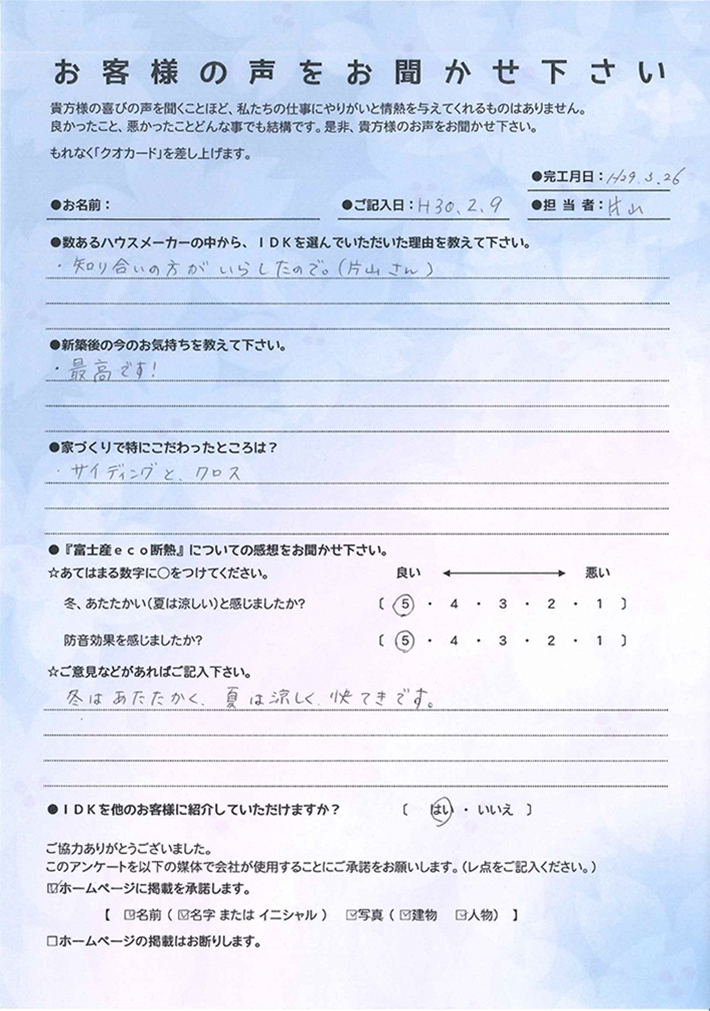 お客様の声をお聞かせ下さい
貴方様の喜びの声を聞くことほど、私たちの仕事にやりがいと情熱を与えてくれるものはありません。
良かったこと、悪かったことどんな事でも結構です。是非、貴方様のお声をお聞かせ下さい。
もれなく「クオカード」を差し上げます。
●完工月日：H29.3.26
●お名前： ●ご記入日：H30.2.9 ●担当者：片山
●数あるハウスメーカーの中から、ＩＤＫを選んでいただいた理由を教えて下さい。
・知り合いの方がいらしたので。(片山さん)
●新築後の今のお気持ちを教えて下さい。
・最高です!
●家づくりで特にこだわったところは？
・サイディングと、クロス
●『富士産ｅｃｏ断熱』についての感想をお聞かせ下さい。
☆あてはまる数字に○をつけてください。 良い 悪い
冬、あたたかい（夏は涼しい）と感じましたか？ 〔 5 ・ 4 ・ 3 ・ 2 ・ 1 〕
防音効果を感じましたか？ 〔 5 ・ 4 ・ 3 ・ 2 ・ 1 〕
☆ご意見などがあればご記入下さい。
冬はあたたかく、夏は涼しく、快てきです。
●ＩＤＫを他のお客様に紹介していただけますか？ 〔 はい ・ いいえ 〕
ご協力ありがとうございました。
このアンケートを以下の媒体で会社が使用することにご承諾をお願いします。（レ点をご記入ください。）
☑ホームページに掲載を承諾します。
【 ☑名前（ ☑名字 または イニシャル ） ☑写真（ ☑建物 ☑人物） 】
□ホームページの掲載はお断りします。